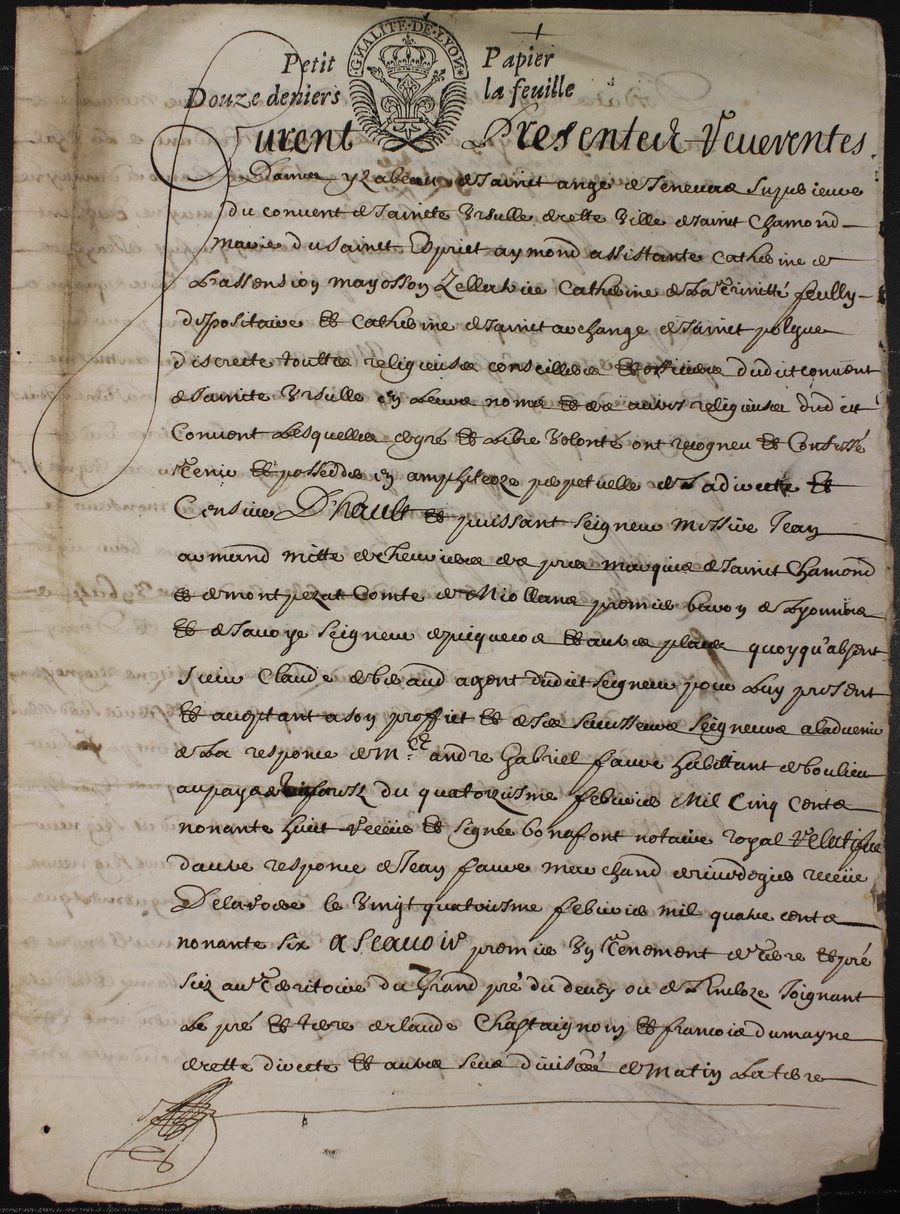 GNALITE·DE·LYON
Petit Papier
Douze deniers la feuille
Furent Presentes Reverentes
Dames yzabeau de sainct ange de superieure
du convent de saincte Ursulle de cette ville de sainct Chamond
marie du sainct Esprict aymond assistante catherine de
L'assension mayosson Zellatrice catherine de la Trinitté feully
dipositaire et catherine de sainct archange de sainct polgue
discrette touttes religieuses conseilleres et officieres dudit convent
de saincte Ursulle en leurs noms et des autres religieuses dudit
Convent Lesquelles de gré et libre volonté ont recogneu et Confessé
Tenir et posseddes en amphiteoze perpetuelle de La directe et
Censive D'hault et puissant seigneur messire Jean
armand mitte de chevrieres de marquis de sainct Chamond
et de montpezat Comte de Miollans premier baron de Lyonnois
et de savoye seigneur de et autres places quoyqu'absent
sieur Claude de agent dudit seigneur pour Luy present
et acceptant a son proffict et de ses seigneurs a l'advenir
de La responce de Mre andre Gabriel faure habittant de boulieu
au pays de du quatorziesme febvrier Mil Cinq cents
nonante huict receüe et signée bonafont notaire royal
d'autre responce de Jean faure marchand de receüe
Delaroere le vingt quatriesme febvrier mil quatre cents
nonante six a scavoir premier un Tenement de terre et pré
size au Territoire du Grand pré du ou de L'encloze Joignant
Le pré et terre de claude Chastaignon et francois dumayne
de cette directe et autres de matin La terre